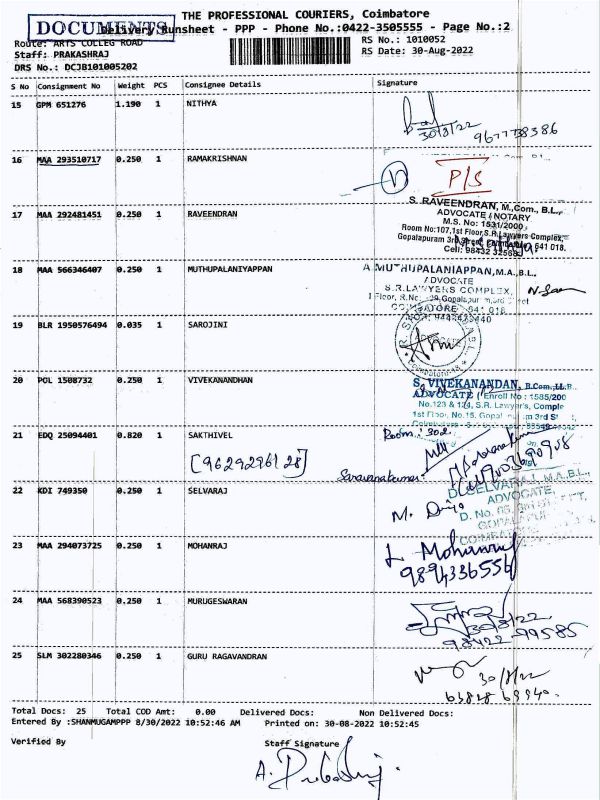 THE PROFESSIONAL COURIERS, Coimbatore
DOCUMENTS
Delivery Runsheet - PPP - Phone No.:0422-3505555 - Page No.:2
Route: ARTS COLLEG ROAD
RS No.: 1010052
Staff: PRAKASHRAJ
RS Date: 30-Aug-2022
DRS No.: DCJB101005202
S No Consignment No Weight PCS Consignee Details Signature
15 GPM 651276 1.190 1 NITHYA
30/8/22 9677738386
16 MAA 293510717 0.250 1 RAMAKRISHNAN
P/S
S. RAVEENDRAN, M.,Com., B.L.,
ADVOCATE / NOTARY
M.S. No: 1531/2000
17 MAA 292481451 0.250 1 RAVEENDRAN
Room No:107,1st Floor,S.R.Lawyers Complex,
Gopalapuram 3rd 641 018.
Cell: 98432 32568
18 MAA 566346407 0.250 1 MUTHUPALANIYAPPAN
A.MUTHUPALANIAPPAN,M.A.,B.L.,
ADVOCATE
S.R.LAWYERS COMPLEX,
19 BLR 1950576494 0.035 1 SAROJINI
ADVOCATE
Coimbatore-18
20 POL 1508732 0.250 1 VIVEKANANDHAN
S. VIVEKANANDAN, B.Com.,LL.B.,
ADVOCATE (Enroll No : 1585/200
No.123 & 124, S.R. Lawyer's, Comple
1st Floor, No.15, 3rd St
21 EDQ 25094401 0.820 1 SAKTHIVEL
Room: 302
[9629296128]
Saravanakumar
22 KDI 749350 0.250 1 SELVARAJ
D. SELVARAJ, M.A.,B.L.,
ADVOCATE,
M. Divya
23 MAA 294073725 0.250 1 MOHANRAJ
L Mohanraj
9894336554
24 MAA 568390523 0.250 1 MURUGESWARAN
30/8/22
98422-99585
25 SLM 302280346 0.250 1 GURU RAGAVANDRAN
30/8/22
Total Docs: 25 Total COD Amt: 0.00 Delivered Docs: Non Delivered Docs:
Entered By :SHANMUGAMPPP 8/30/2022 10:52:46 AM Printed on: 30-08-2022 10:52:45
Verified By Staff Signature